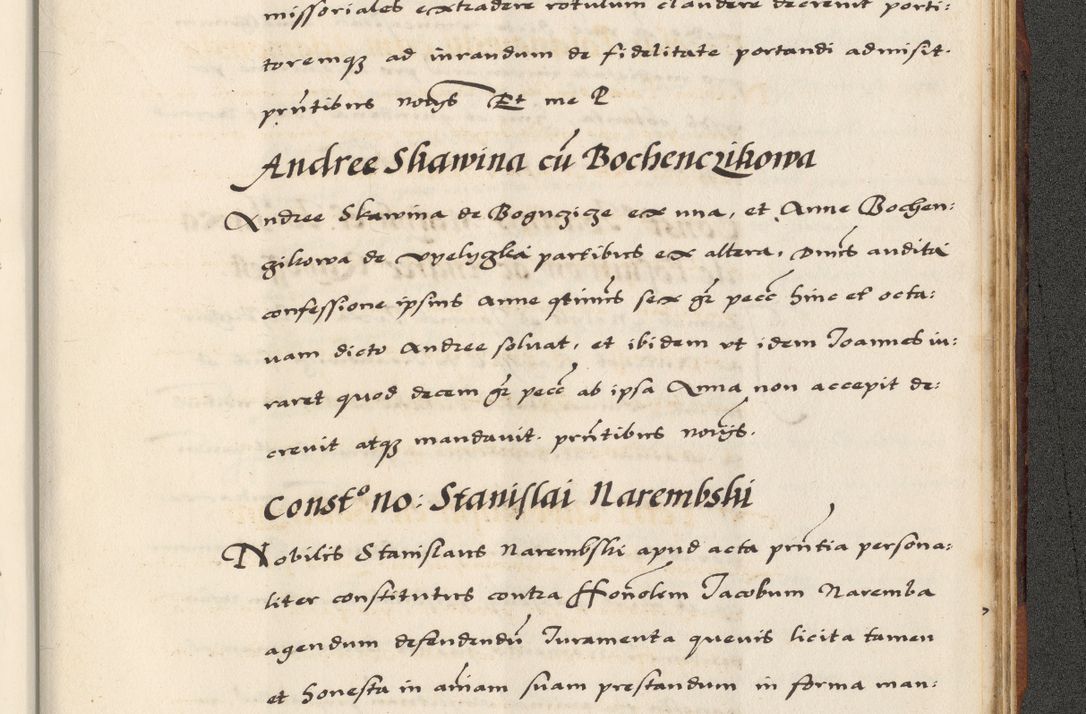 missoriales extradere rotulum claudere decrevit porti:
toremqȝ ad iurandum de fidelitate portandi admisit.
pn̄tibus notijs Et me P
Andree Skawina cū Bochenczikowa
Andree Skawina de Boguczicze ex una, et Anne Bochen:
zikowa de Vpelyczka partibus ex altera, Dnūs audita
confessione ipsius Anne qtinus sex gr pecc hinc et octa:
uam dicto Andree soluat, et ibidem vt idem Joannes iu:
raret quod decem gr pecc ab ipsa Anna non accepit de:
crevit atqȝ mandauit. pn̄tibus notijs.
Constº no: Stanislai Narembski
Nobilis Stanislaus Narembski apud acta pn̄tia persona:
liter constitutus contra Honōlem Jacobum Naremba
agendum defendendū Juramenta quevis licita tamen
et honesta in aīam suam prestandum in forma man: